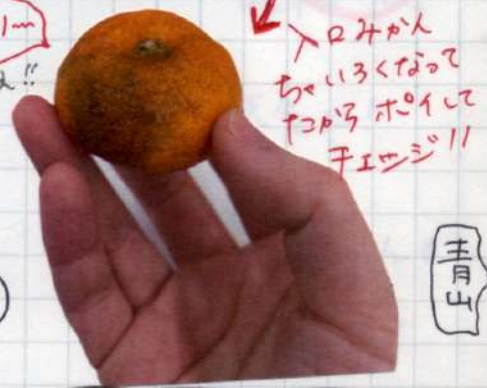 入口みかん
ちゃいろくなって
たからポイして
チェンジ!!
青山